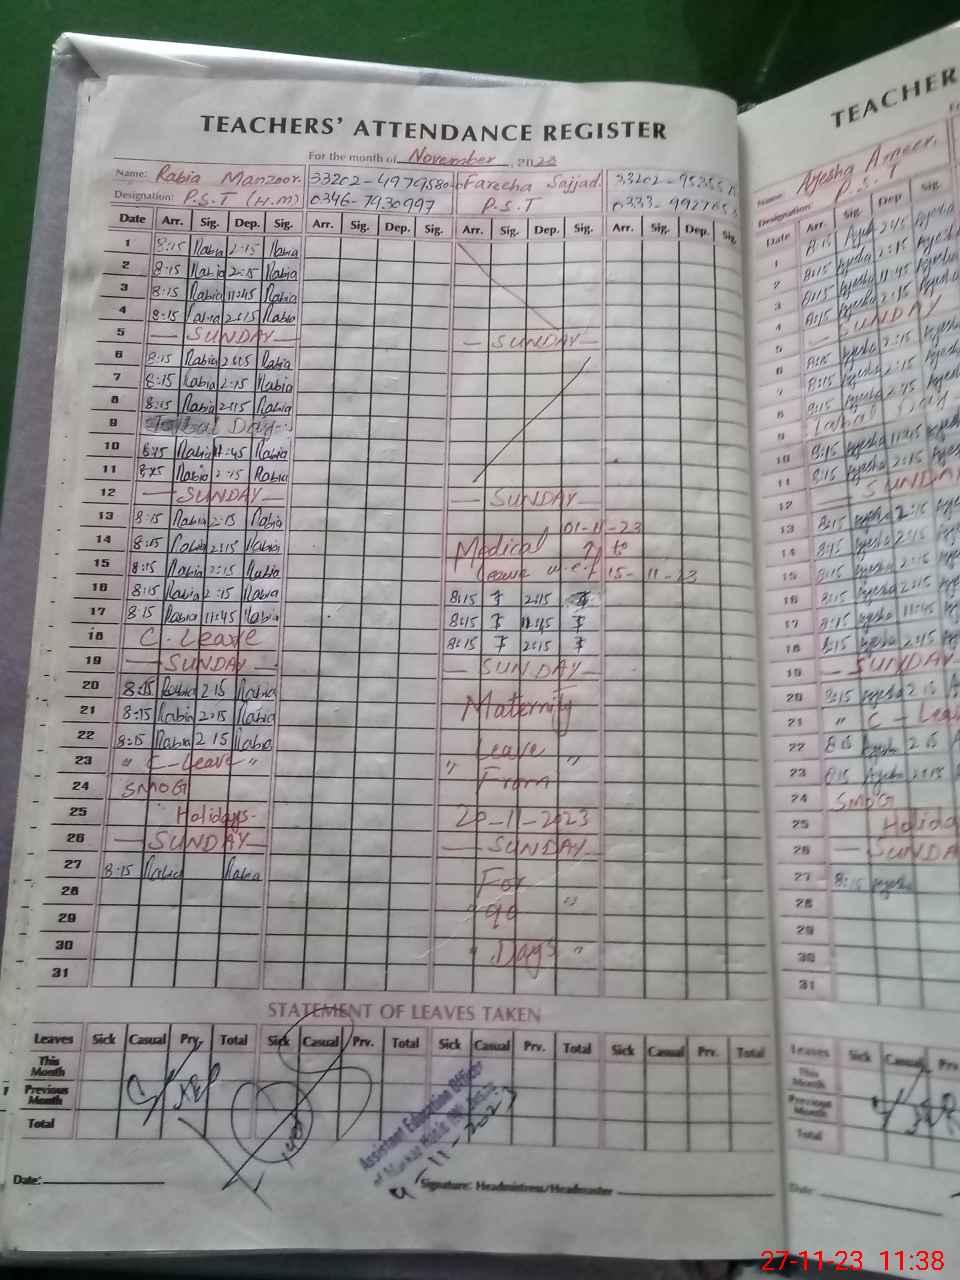 TEACHERS' ATTENDANCE REGISTER
For the month of November, 2023
Name: Rabia Manzoor. Fareeha Sajjad.
Designation: P.S.T (H.M) 0346-7930997 P.S.T
Date Arr. Sig. Dep. Sig. Arr. Sig. Dep. Sig. Arr. Sig. Dep. Sig. Arr. Sig. Dep. Sig.
1 8:15 Rabia 2:15 Rabia
2 8:15 Rabia 2:15 Rabia
3 8:15 Rabia 11:45 Rabia
4 8:15 Rabia 2:15 Rabia
5 — SUNDAY — — SUNDAY —
6 8:15 Rabia 2:15 Rabia
7 8:15 Rabia 2:15 Rabia
8 8:15 Rabia 2:15 Rabia
9 Day
10 8:15 Rabia 11:45 Rabia
11 8:15 Rabia 2:15 Rabia
12 — SUNDAY — — SUNDAY —
13 8:15 Rabia 2:15 Rabia 01-11-23
14 8:15 Rabia 2:15 Rabia Medical to
15 8:15 Rabia 2:15 Rabia leave w.e.f 15-11-23
16 8:15 Rabia 2:15 Rabia 8:15 2:15
17 8:15 Rabia 11:45 Rabia 8:15 11:45
18 C. Leave 8:15 2:15
19 — SUNDAY — — SUNDAY —
20 8:15 Rabia 2 15 Rabia
21 8:15 Rabia 2:15 Rabia Maternity
22 8:15 Rabia 2 15 Rabia Leave
23 " C-Leave " " From "
24 SMOG
25 Holidays- 20-11-2023
26 — SUNDAY — — SUNDAY —
27 8:15 Rabia Rabia For
28 " 90 "
29
30 " Days "
31
STATEMENT OF LEAVES TAKEN
Leaves Sick Casual Prv. Total Sick Casual Prv. Total Sick Casual Prv. Total Sick Casual Prv. Total
This Month
Previous Month
Total
Assistant Education Officer
Date: Signature: Headmistress/Headmaster
TEACHER
Name: Ayesha Ameer.
Designation: P.S.T
Date Arr. Sig. Dep Sig.
1 8:15 2:15 Ayesha
2 8:15 Ayesha 2:15 Ayesha
3 8:15 Ayesha 11:45 Ayesha
4 8:15 Ayesha 2:15 Ayesha
5 — SUNDAY
6 8:15 Ayesha 2:15
7 8:15 Ayesha 2:15
8 8:15 Ayesha 2:15
9 Day
10 8:15 Ayesha 11:45
11 8:15 Ayesha 2:15
12 — SUNDAY
13 8:15 Ayesha 2:15
14 8:15 Ayesha 2:15
15 8:15 Ayesha 2:15
16 8:15 Ayesha 2:15
17 8:15 Ayesha 11:45
18 8:15 Ayesha 2:15
19 — SUNDAY
20 8:15 Ayesha 2 15
21 " C - Leav
22 8:15 Ayesha 2 15
23 8:15 Ayesha 2:15
24 SMOG
25 Holida
26 — SUNDA
27 8:15 Ayesha
28
29
30
31
Leaves Sick Casual Prv
This Month
Previous Month
Total
Date:
27-11-23 11:38